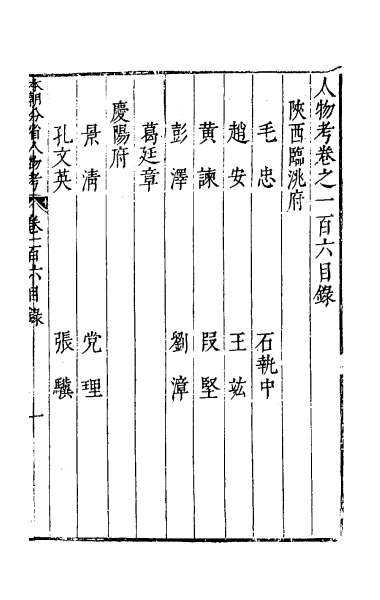 人物考卷之一百六目錄
陜西臨洮府
毛忠 石執中
趙安 王竑
黃諫 段堅
彭澤 劉漳
葛廷章
慶陽府
景清 党理
孔文英 張驥
本朝分省人物考 卷一百六目錄 一